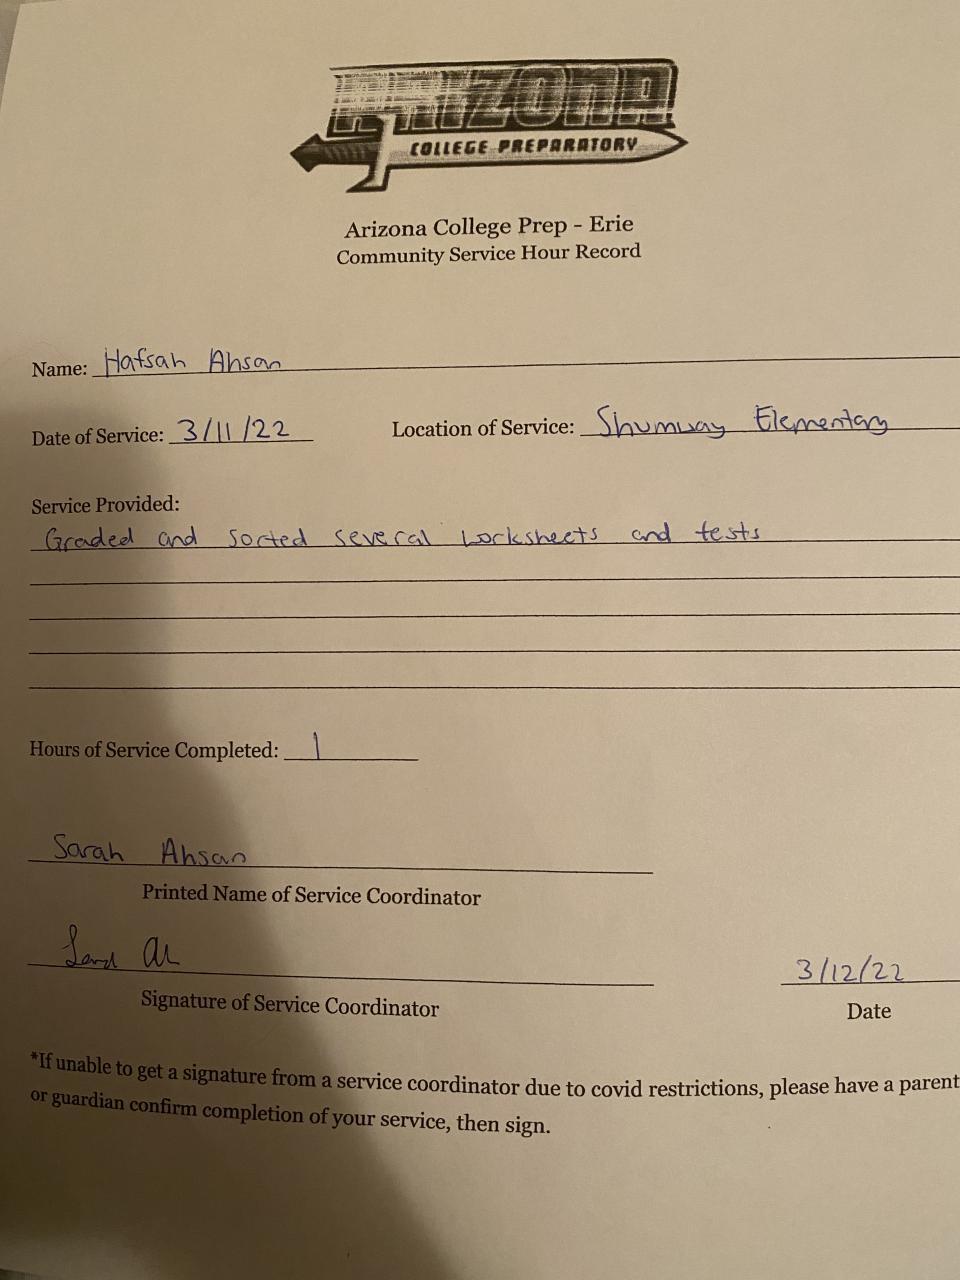 ARIZONA
COLLEGE PREPARATORY
Arizona College Prep - Erie
Community Service Hour Record
Name: Hafsah Ahsan
Date of Service: 3/11/22 Location of Service: Shumway Elementary
Service Provided:
Graded and sorted several worksheets and tests
Hours of Service Completed: 1
Sarah Ahsan
Printed Name of Service Coordinator
3/12/22
Signature of Service Coordinator Date
*If unable to get a signature from a service coordinator due to covid restrictions, please have a parent
or guardian confirm completion of your service, then sign.